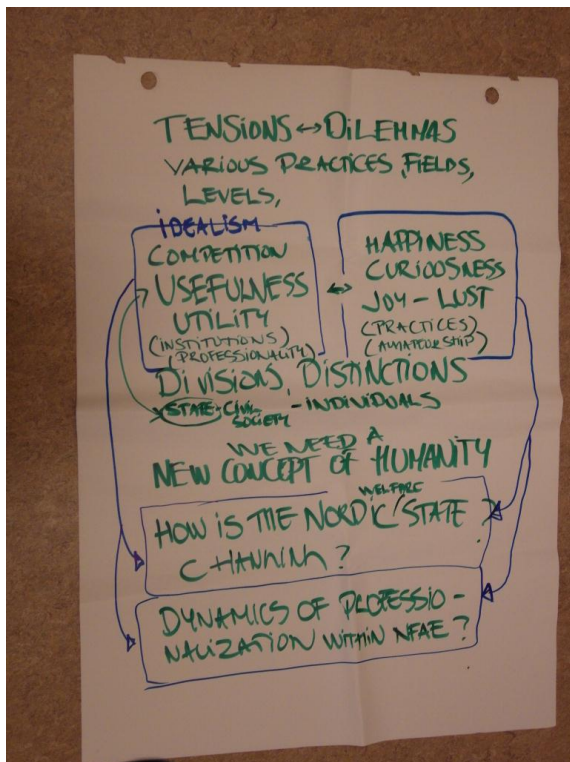 TENSIONS ↔ DILEMMAS
VARIOUS PRACTICES, FIELDS,
LEVELS,
IDEALISM
COMPETITION
USEFULNESS
UTILITY
(INSTITUTIONS)
(PROFESSIONALITY)
↔
HAPPINESS
CURIOUSNESS
JOY - LUST
(PRACTICES)
(AMATEURSHIP)
DIVISIONS, DISTINCTIONS
STATE - CIVIL SOCIETY - INDIVIDUALS
WE NEED A
NEW CONCEPT OF HUMANITY
WELFARE
HOW IS THE NORDIC / STATE ?
CHANGING ?
DYNAMICS OF PROFESSIO -
NALIZATION WITHIN NFAE ?